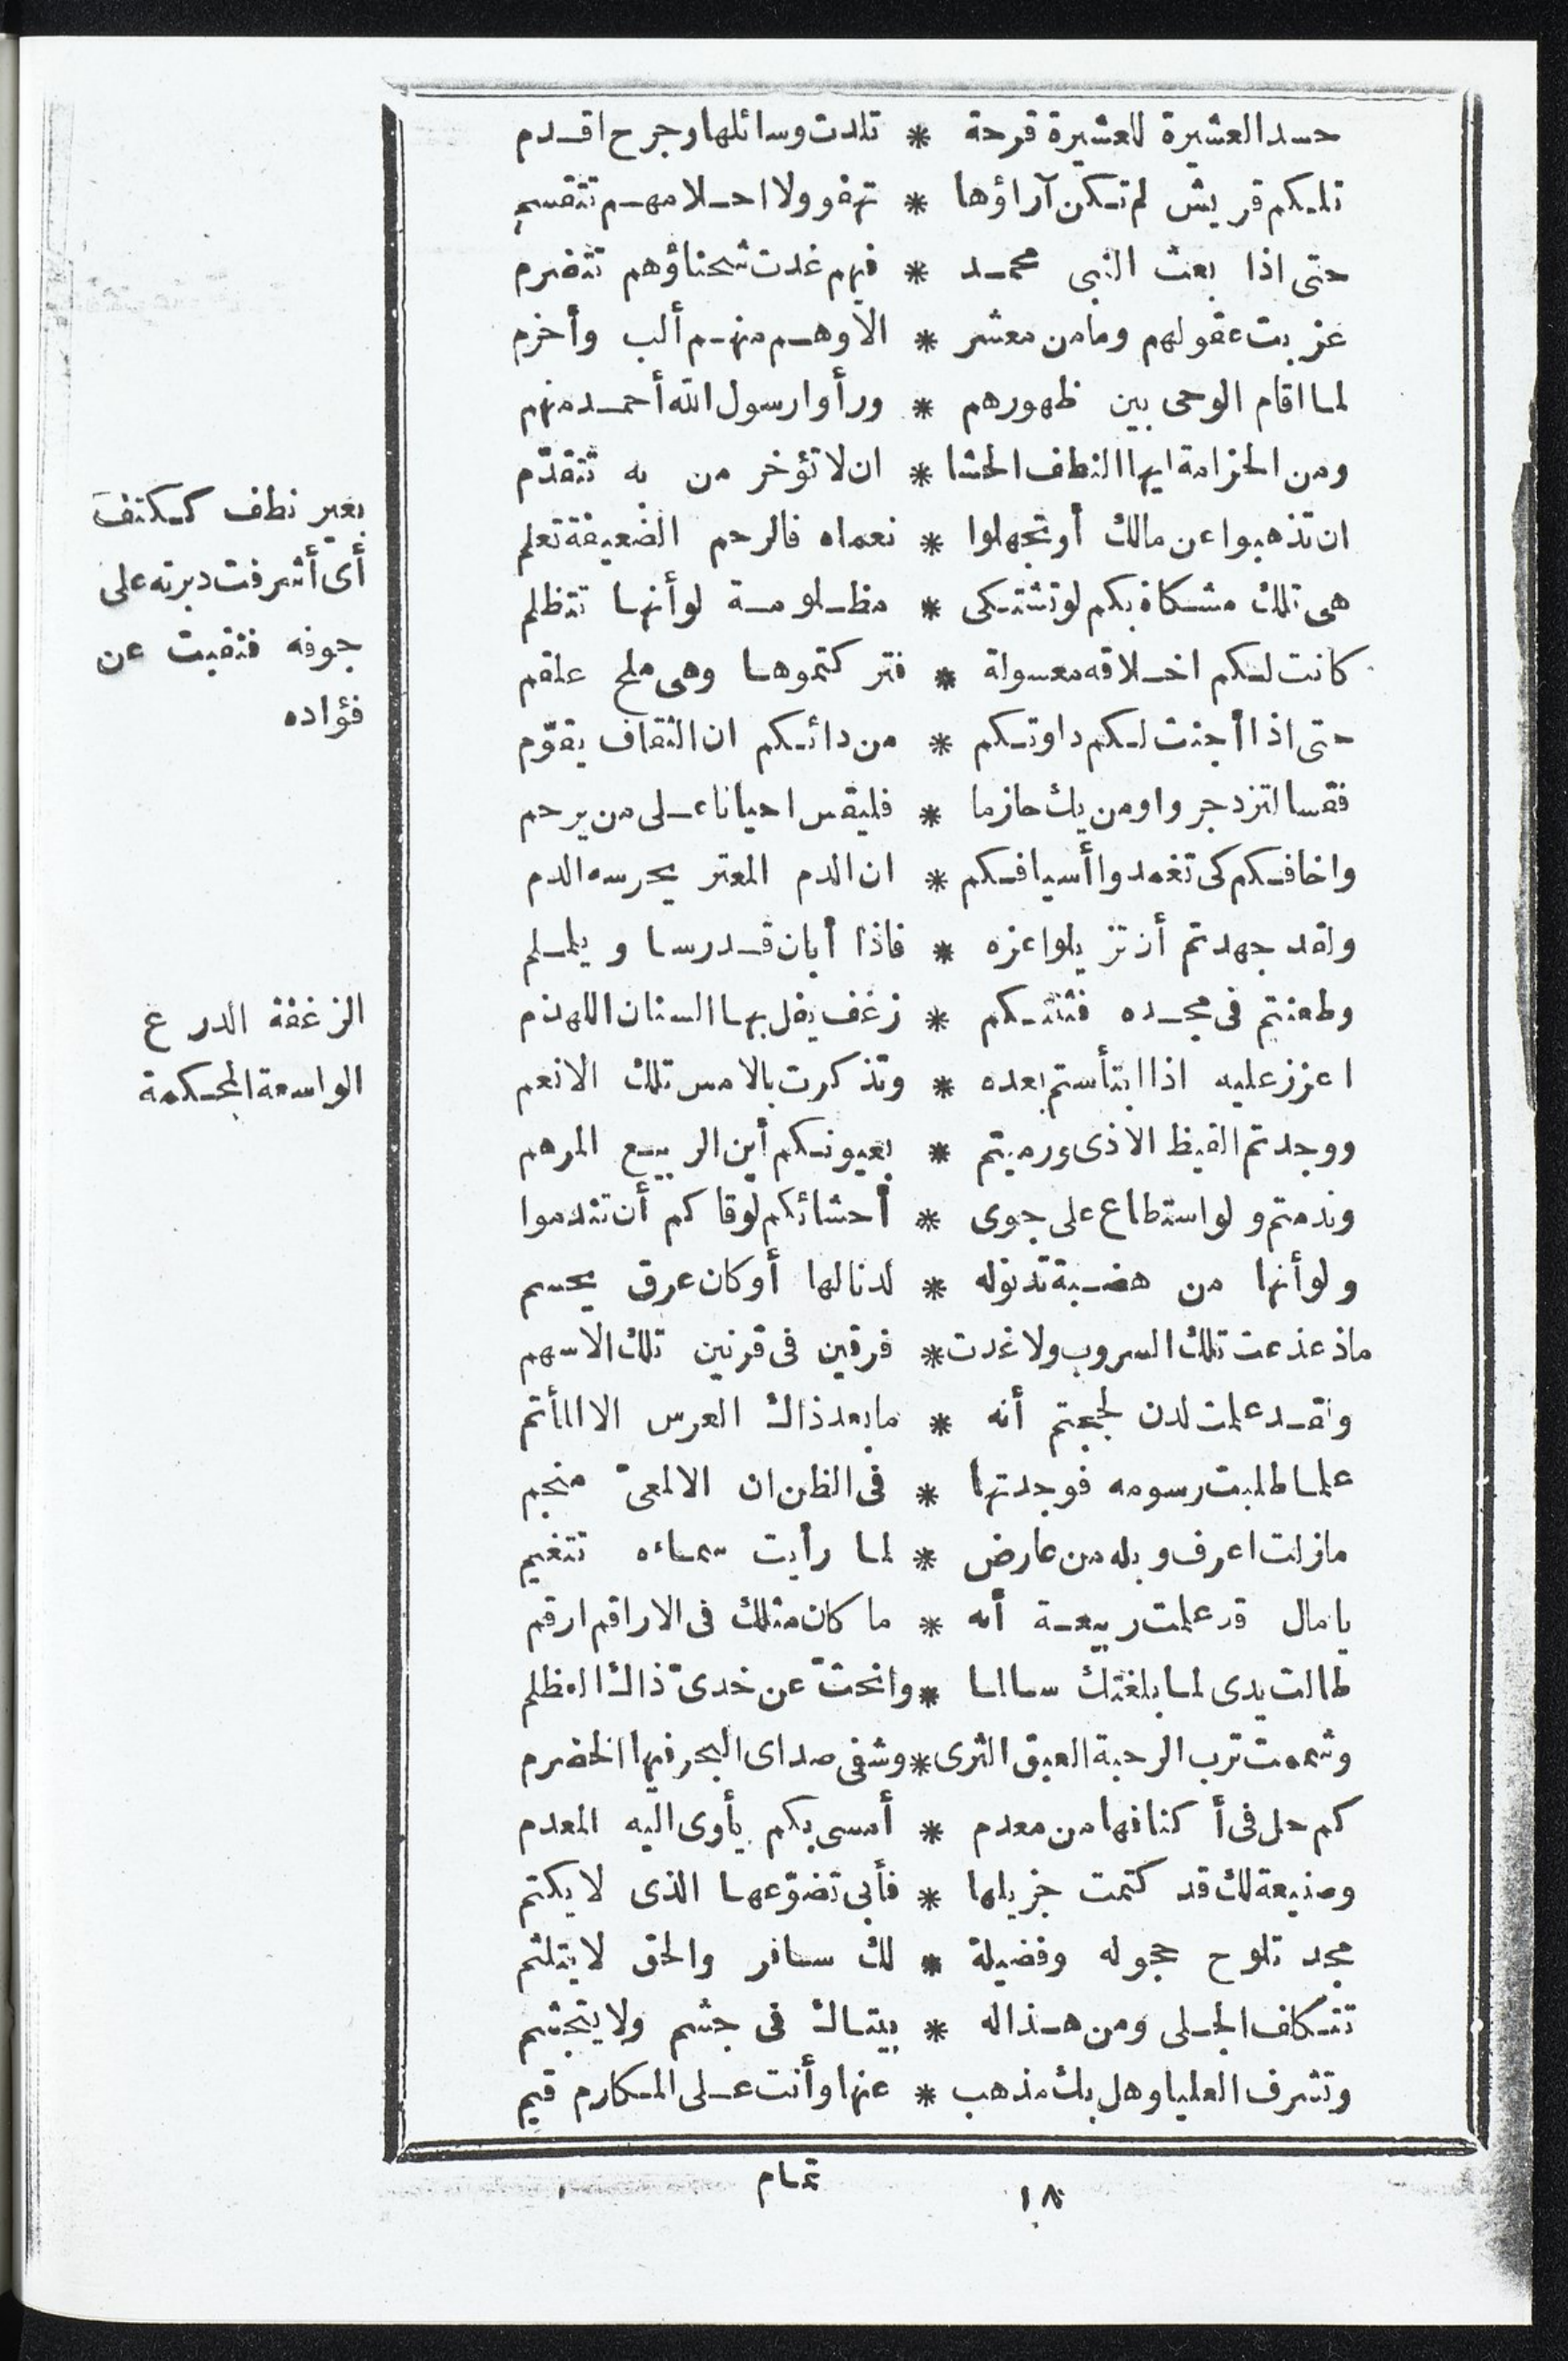 حسد العشيرة للعشيرة قرحة * تلدت وسائلها وجرح اقدم
تلكم قريش لم تكن آراؤها * تهفو ولا احلامهم تتقسم
حتى اذا بعث النبى محمد * فيهم غدت شحناؤهم تتضرم
عزبت عقولهم وما من معشر * الا وهم منهم ألب وأحزم
لما اقام الوحى بين ظهورهم * ورأوا رسول الله أحمد منهم
ومن الحزامة ايها النطف الحشا * ان لا تؤخر من به تتقدّم
ان تذهبوا عن مالك أو تجهلوا * نعماه فالرحم الضعيفة تعلم
هى تلك مشكاة بكم لو تشتكى * مظلومة لو أنها تتظلم
كانت لكم اخلاقه معسولة * فتركتموها وهى ملح علقم
حتى اذا أجنت لكم داوتكم * من دائكم ان الثقاف يقوّم
فقسا لتزدجروا ومن يك حازما * فليقس احيانا على من يرحم
واخافكم كى تغمدوا أسيافكم * ان الدم المعتر يحرسه الدم
ولقد جهدتم أن تزيلوا عزه * فاذا أبان قد رسا ويلملم
وطعنتم فى مجده فثنتكم * زغف يفل بها السنان اللهذم
اعزز عليه اذا ابتأستم بعده * وتذكرت بالامس تلك الانعم
ووجدتم القيظ الاذى ورميتم * بعيونكم أين الربيع المرهم
وندمتم ولو استطاع على جوى * أحشائكم لوقاكم أن تندموا
ولو أنها من هضبة تدنو له * لدنا لها أو كان عرق يحسم
ما ذعذعت تلك السروب ولا غدت * فرقين فى قرنين تلك الاسهم
ولقد علمت لدن لججتم أنه * ما بعد ذاك العرس الا المأتم
علما طلبت رسومه فوجدتها * فى الظن ان الالمعىّ منجم
مازلت اعرف وبله من عارض * لما رأيت سماءه تتغيم
يا مال قد علمت ربيعة أنه * ما كان مثلك فى الاراقم ارقم
طالت يدى لما بلغتك سالما * وانحتّ عن خدىّ ذاك العظلم
وشممت ترب الرحبة العبق الثرى * وشفى صداى البحر فيها الخضرم
كم حل فى أكنافها من معدم * أمسى بكم يأوى اليه المعدم
وصنيعة لك قد كتمت جزيلها * فأبى تضوّعها الذى لا يكتم
مجد تلوح حجوله وفضيلة * لك سافر والحق لا يتلثم
تتكلف الجلى ومن هذا له * بيتاك فى جشم ولا يتجشم
وتشرف العليا وهل بك مذهب * عنها وأنت على المكارم قيم
١٨ تمام
بعير نطف ككتف
أى أشرفت دبرته على
جوفه فنقبت عن
فؤاده
الزغفة الدرع
الواسعة المحكمة